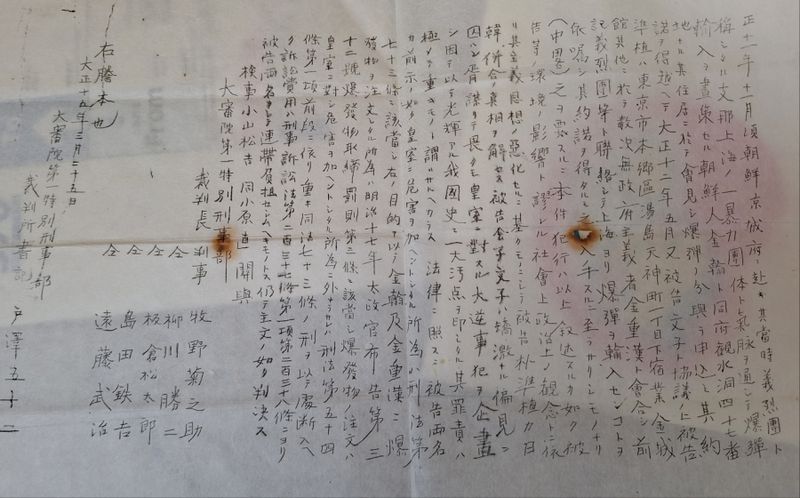 正十一年十一月頃朝鮮京城府ニ赴キ其當時義烈團ト
稱シタル支那上海ノ一暴力團体ト氣脉ヲ通シテ爆彈
輸入ヲ畫策セル朝鮮人金翰ト同府觀水洞四十七番
地ナル其住居ニ於テ會見シ爆彈ノ分與ヲ申込ミ其ノ約
諾ヲ得 ヘテ大正十二年五月又被告文子ト協議ノ上被告
準植ハ東京市本鄉區湯島天神町一丁目下宿業金城
館其他ニ於テ數次無政府主義者金重漢ト會合シ前
記義烈團等ト聯絡シテ上海ヨリ爆彈ヲ輸入センコトヲ
依嘱シ其約諾ヲ得タルモ 入手スルニ至ラサリシモノナリ
(中略)之ヲ要スルニ本件犯行ハ以上叙述スル如ク被
告等ノ環境ノ影響ト謬レル社會上政治上ノ觀念トニ依
リ其主義思想ノ惡化セルニ基クモノニシテ被告朴準植カ日
韓併合ノ真相ヲ解セス被告金子文子カ矯激ナル偏見ニ
囚ハレ 謀ヲテ畏クモ皇室ニ對スル大逆事犯ヲ企畫
シ因テ以テ光輝アル我國史ニ一大汚点ヲ印シタル其罪責ハ
極メテ重キモノト謂ハサルヘカラス 法律ニ照スニ被告両名
カ前示ノ如ク皇室ニ危害ヲ加ヘントシタル所為ハ刑法第
七十三條ニ該當シ右ノ目的ヲ以テ金翰及金重漢ニ爆
發物ヲ注文シタル所為ハ明治十七年太政官布告第三
十二號爆發物取締罰則第三條ニ該當シ爆發物ノ注文ハ
皇室ニ對シ危害ヲ加ヘントシタル所為ニ外ナラサレハ刑法第五十四
條第一項前段ニ依リ重キ同法七十三條ノ刑ヲ以テ處断スヘ
ク訴訟費用ハ刑事訴訟法第二百三十七條第一項第二百三十八條ニヨリ
被告両名ヲシテ連帶負担セシムヘキモノトス仍テ主文ノ如ク判決ス
檢事小山松吉 同小原 直 関與
大審院第一特別刑事部
裁判長判事 牧野菊之助
仝 柳川勝二
仝 板倉松太郎
仝 島田鉄吉
仝 遠藤武治
右謄本也
大正十五年三月二十五日
大審院第一特別刑事部
裁判所書記 戸澤五十二